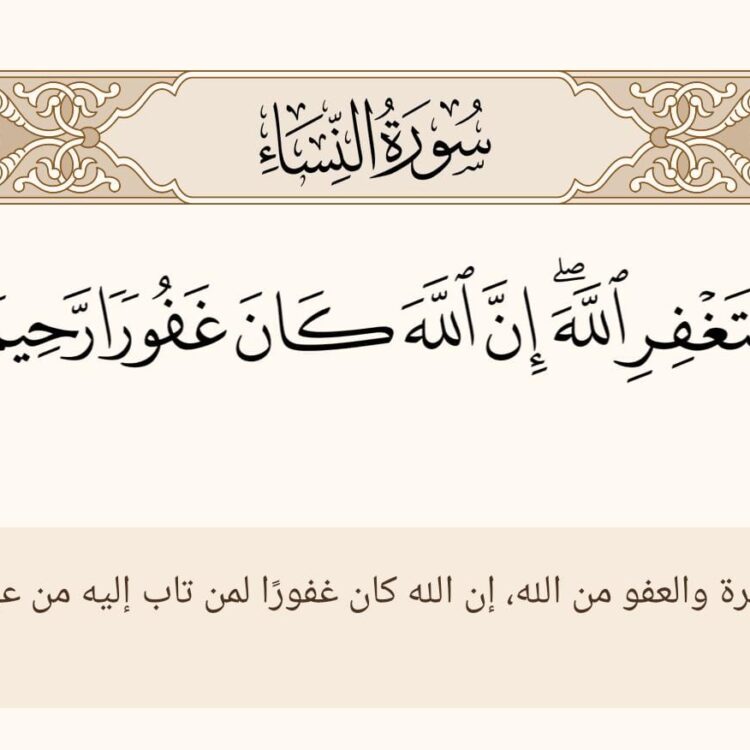 سُورَةُ النِّسَاءِ
ٱللَّهَۖ إِنَّ ٱللَّهَ كَانَ غَفُورًا
والعفو من الله، إن الله كان غفورًا لمن تاب إليه من